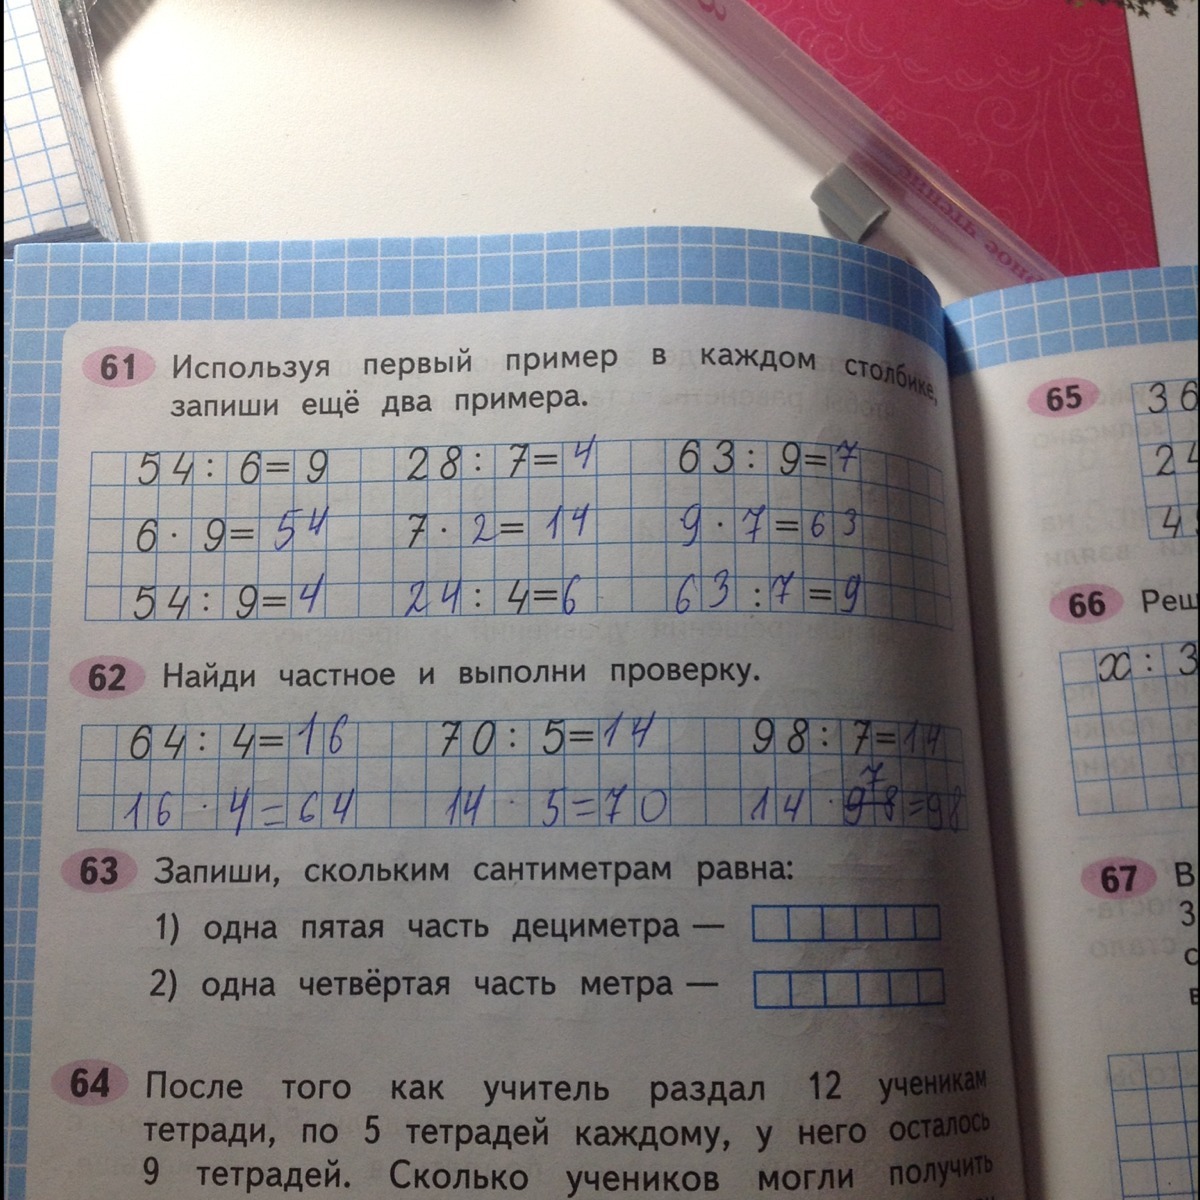 61 Используя первый пример в каждом столбике,
запиши ещё два примера.
54 : 6 = 9 28 : 7 = 4 63 : 9 = 7
6 · 9 = 54 7 · 2 = 14 9 · 7 = 63
54 : 9 = 4 24 : 4 = 6 63 : 7 = 9
62 Найди частное и выполни проверку.
64 : 4 = 16 70 : 5 = 14 98 : 7 = 14
7
16 · 4 = 64 14 · 5 = 70 14 · 98 = 98
63 Запиши, скольким сантиметрам равна:
1) одна пятая часть дециметра —
2) одна четвёртая часть метра —
64 После того как учитель раздал 12 ученикам
тетради, по 5 тетрадей каждому, у него осталось
9 тетрадей. Сколько учеников могли получить
65 36
24
4
66 Реш
x : 3
67 В
З
с
в